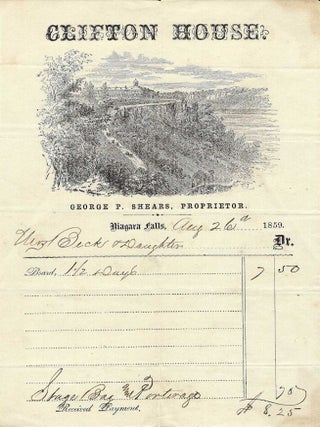 CLIFTON HOUSE.
GEORGE P. SHEARS, PROPRIETOR.
Niagara Falls, Aug 26th 1859.
Mrs Beck & Daughter Dr.
Board, 1 1/2 Days 7 50
Stage Bag & Porterage 75
Received Payment, $ 8.25